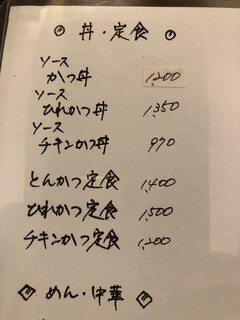 ◎ 丼・定食 ◎
ソース
かつ丼 1,200
ソース
ひれかつ丼 1,350
ソース
チキンかつ丼 970
とんかつ定食 1,400
ひれかつ定食 1,500
チキンかつ定食 1,200
◈ めん・中華 ◈